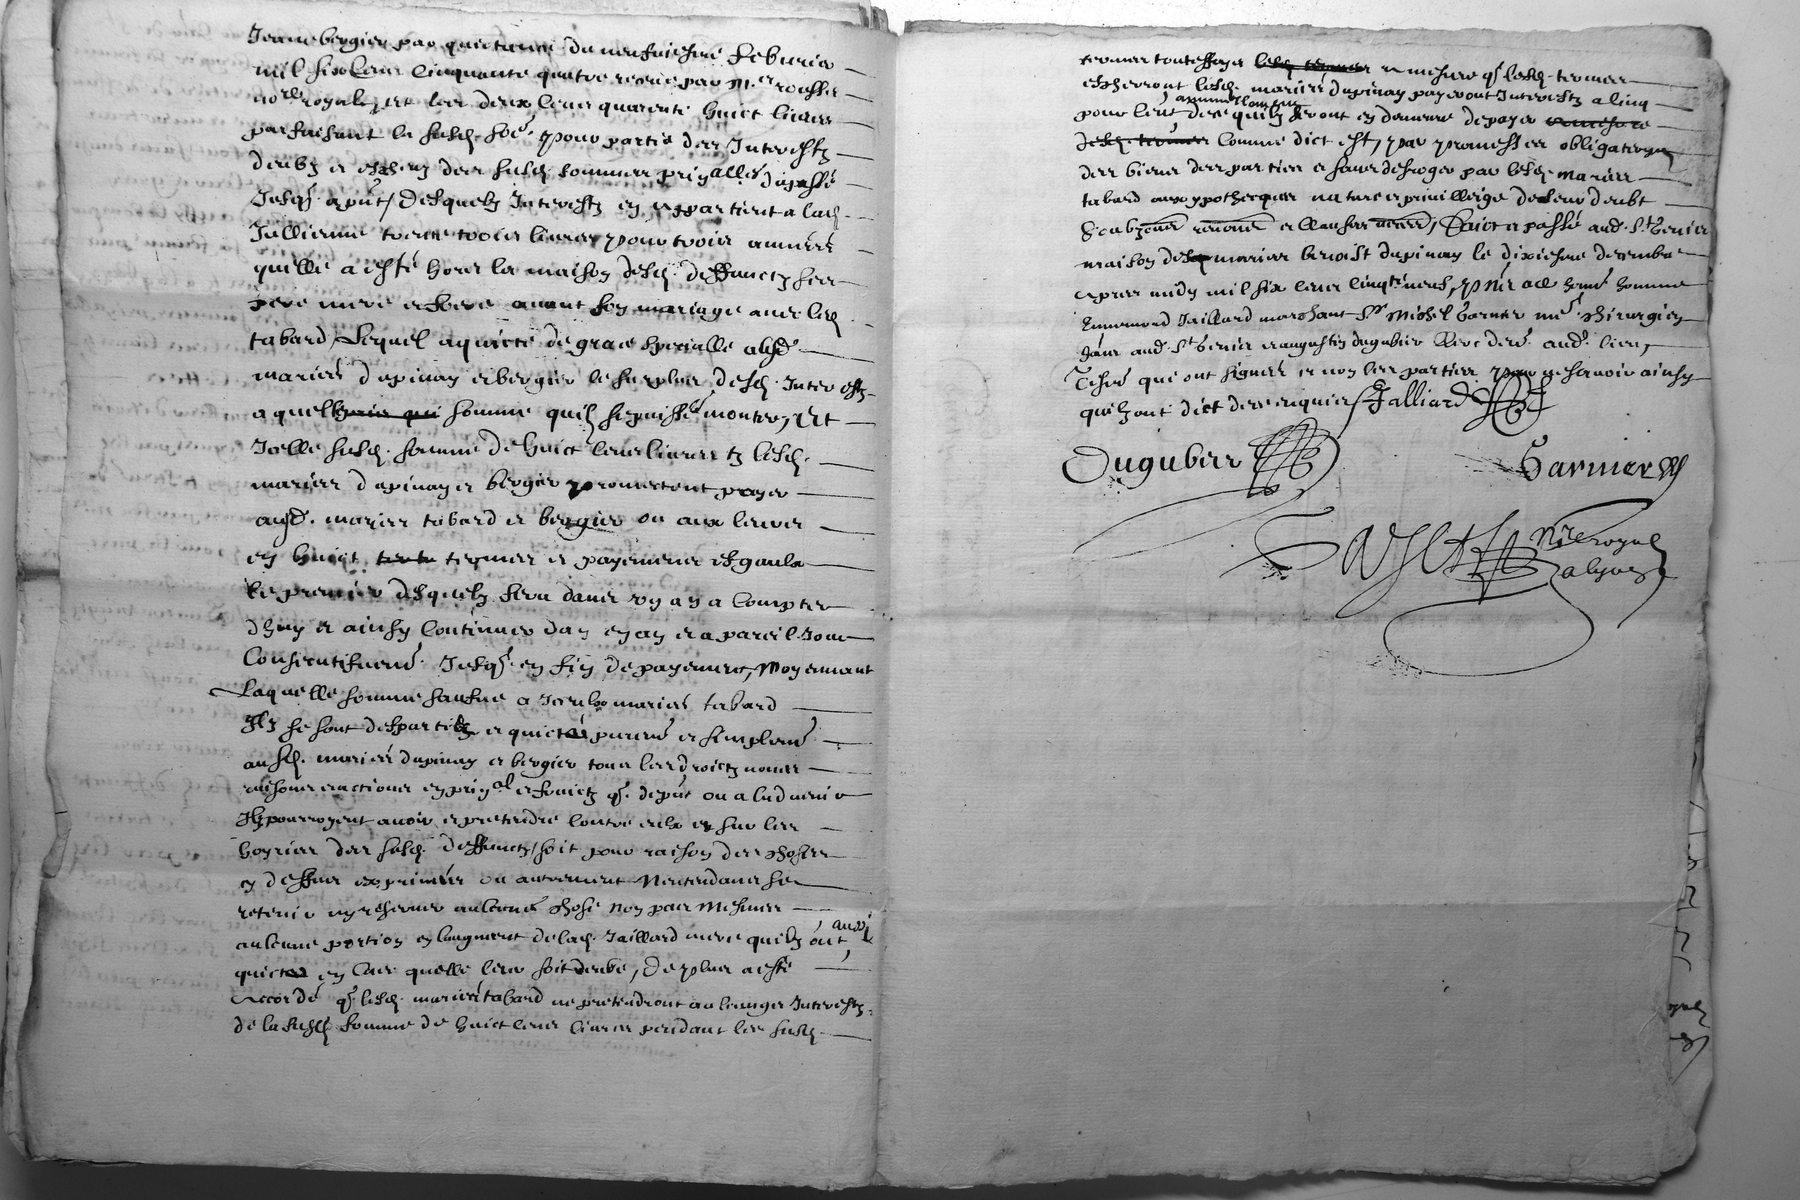 Jeanne bergier par quictance du neufviesme febvrier
mil six cens cinquante quatre receue par Me rousset
nore royal, et les deux cens quarante huict livres
parfaisant la susd. so͠e pour partie des Interestz
deubz et escheuz des susd. sommes prinalles du passé
Jusqs. a pn͠t, desquelz Interestz en appartient a lad.
Jullienne trente trois livres pour trois années
quelle a esté hors la maison desd. deffunctz ses
pere mere et frere avant son mariage avec led.
tabard, Lequel a quicté de grace specialle ausd.
mariés dupinay et bergier le surplus desd. Interestz
a quelle somme quilz se puisse monter, Et
Icelle susd. somme de huict cens livres tz lesd.
mariés dupinay et bergier promectent payer
ausd. mariés tabard et bergier ou aux leurs
en huict termes et payemens esgaulx
le premier desquelz sera dans ung an a compter
dhuy et ainsy continuer dan en an et a pareil Jour
Consecutifvemt. Jusqs. en fin de payement, Moyennant
Laquelle somme sauve a Iceulx mariés tabard
Ilz se sont despartis et quictés puremt et simplemt
ausd. mariés dupinay et bergier tous les droictz noms
raisons et actions en prinal et fruictz qs. de pn͠t ou a ladvenir
Ilz pourroyent avoir et pretendre contre eulx et sur les
hoyries des susd. deffunctz, soit pour raison des choses
cy dessus exprimées ou autrement Nentendans se
retenir ny reserver aulcune chose non pas mesmes
aulcune portion en laugment de lad. Jaillard mere quilz ont aussi
quicté en cas quelle leur soit deube, De plus a esté
Accordé qs. lesd. mariés tabard ne pretendront aulcungs Interestz
de la susd. somme de huict cens livres pendant les susd.
termes touteffoys lesd. termes a mesure qs. lesd. termes
escherront lesd. mariés dupinay payeront Interestz a cinq
pour cent des quilz seront en demeure de payer a mesure
desd. termes Comme dict est, par promesses obligations
des biens des parties et sans desroger par lesd. mariés
tabard aux ypotecques nature et privilleige de leur deubt
Soubzmn͠s renon͠s et clauses, faict et passé aud. St Genis
maison desd. mariés benoist dupinay le dixiesme decembre
apres midy mil six cens cinqte neuf, pn͠s a ce honn. homme
Ennemond Jaillard marchant Sr Michel Garnier me chirurgien
aud. St Genis et augustin dugubier clerc dem. aud. lieu,
Tesm. qui ont signés et non les parties pour ne scavoir ainsy
quilz ont dict de ce enquis, Jalliard
Dugubier
Garnier
nre royal
a lyon